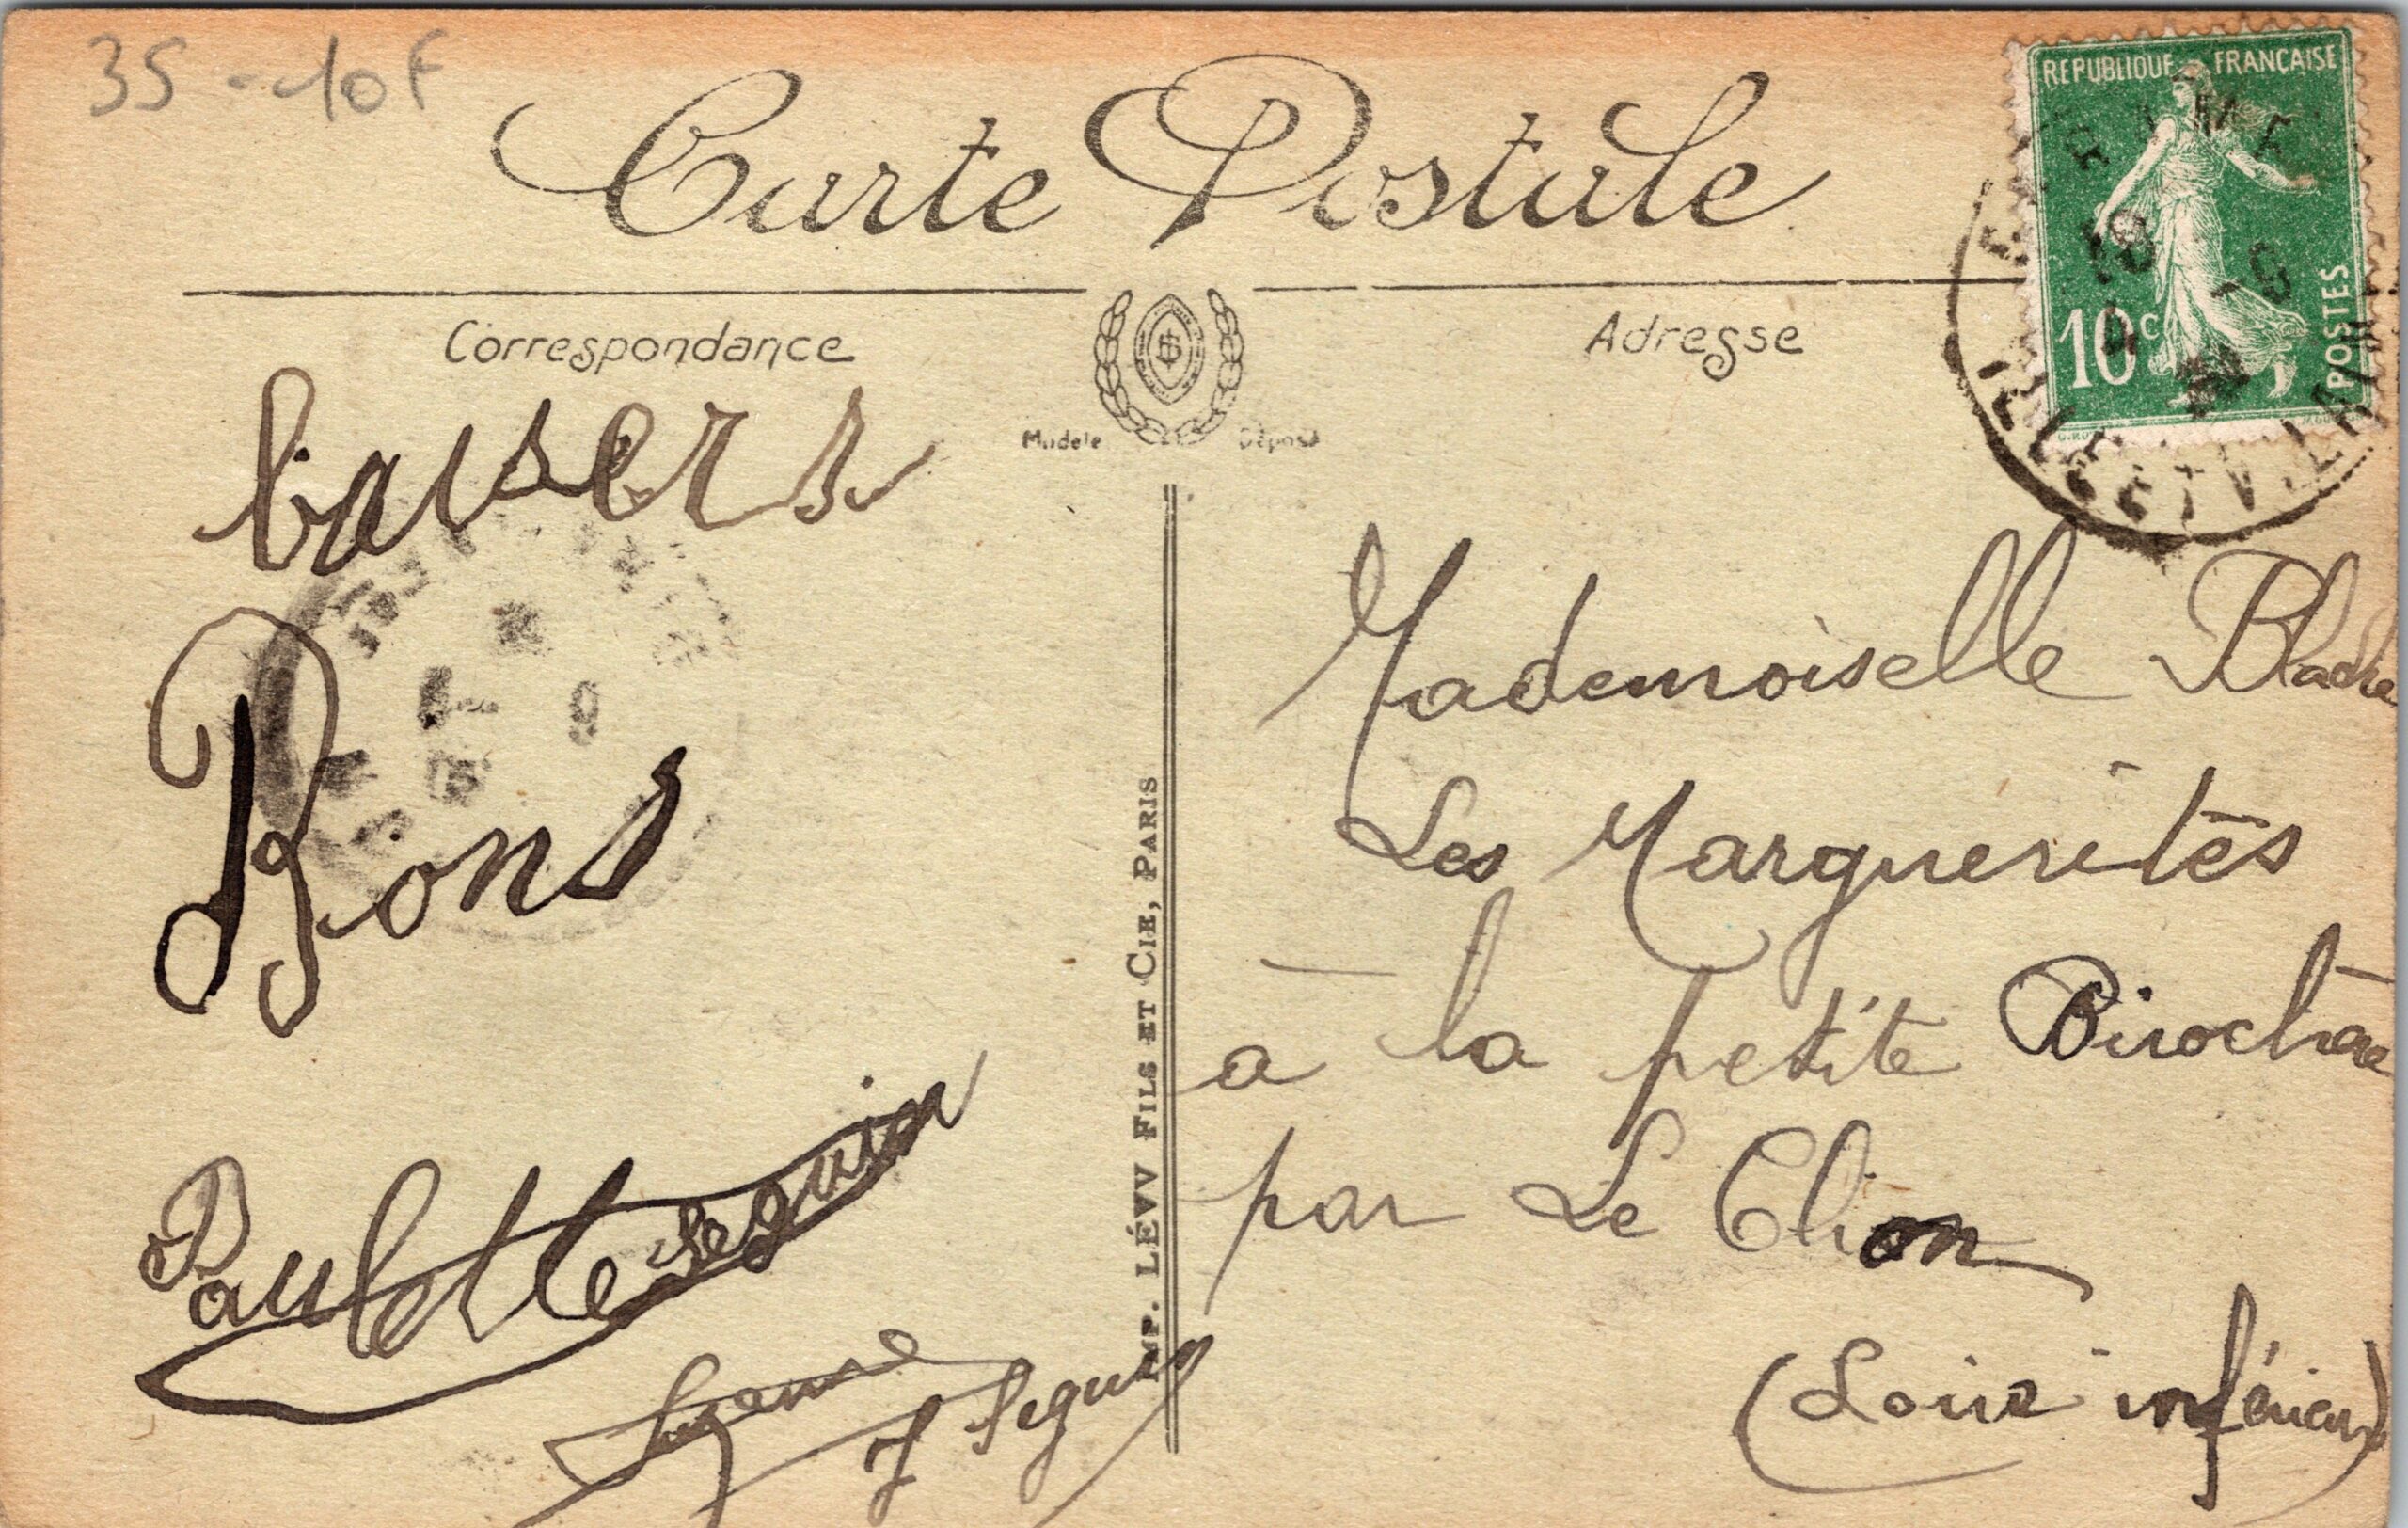 35 - 10F
Carte Postale
Correspondance
Adresse
Modèle Déposé
REPUBLIQUE FRANÇAISE
10c
POSTES
ILLE-ET-VILAINE
baisers
Bons
Paulette Seguin
Suzanne
J Seguin
IMP. LÉVY FILS ET CIE, PARIS
Mademoiselle
Les Marguerites
à la petite Birochère
par Le Clion
(Loire inférieure)